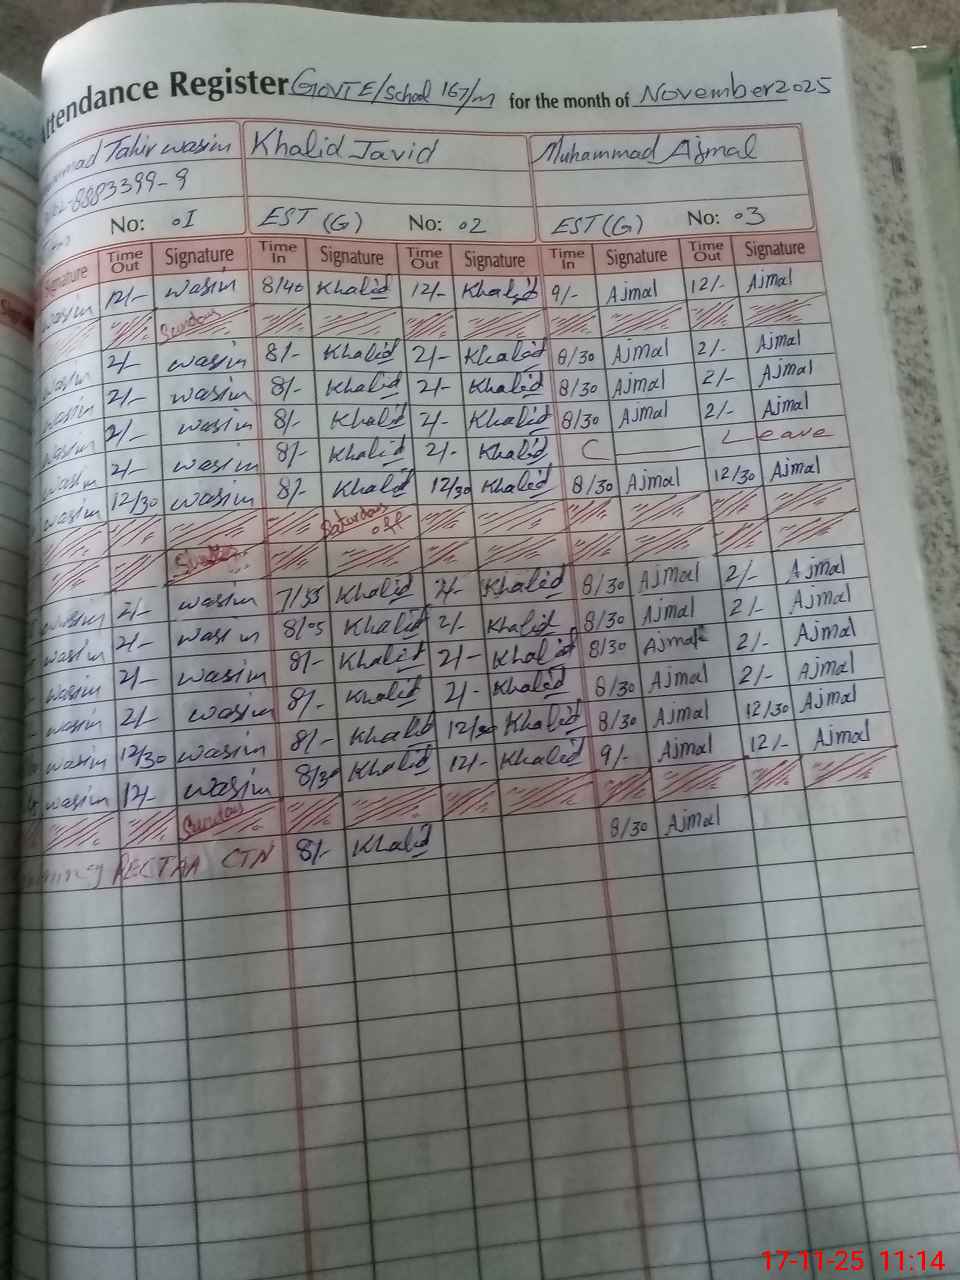 Attendance Register Govt E/School 167/m for the month of November 2025
Tahir wasim Khalid Javid Muhammad Ajmal
8883399-9
No: 01 EST (G) No: 02 EST (G) No: 03
Time Out Signature Time In Signature Time Out Signature Time In Signature Time Out Signature
wasim 12/- wasim 8/40 Khalid 12/- Khalid 9/- Ajmal 12/- Ajmal
Sunday
wasim 2/- wasim 8/- Khalid 2/- Khalid 8/30 Ajmal 2/- Ajmal
wasim 2/- wasim 8/- Khalid 2/- Khalid 8/30 Ajmal 2/- Ajmal
wasim 2/- wasim 8/- Khalid 2/- Khalid 8/30 Ajmal 2/- Ajmal
wasim 2/- wasim 8/- Khalid 2/- Khalid C Leave
wasim 12/30 wasim 8/- Khalid 12/30 Khalid 8/30 Ajmal 12/30 Ajmal
Saturday off
wasim 2/- wasim 7/55 Khalid 2/- Khalid 8/30 Ajmal 2/- Ajmal
wasim 2/- wasim 8/05 Khalid 2/- Khalid 8/30 Ajmal 2/- Ajmal
wasim 2/- wasim 8/- Khalid 2/- Khalid 8/30 Ajmal 2/- Ajmal
wasim 2/- wasim 8/- Khalid 2/- Khalid 8/30 Ajmal 2/- Ajmal
wasim 12/30 wasim 8/- Khalid 12/30 Khalid 8/30 Ajmal 12/30 Ajmal
wasim 12/- wasim 8/30 Khalid 12/- Khalid 9/- Ajmal 12/- Ajmal
Sunday
CTN 8/- Khalid 8/30 Ajmal
17-11-25 11:14